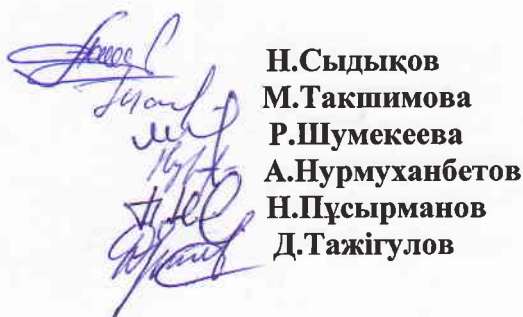 Н.Сыдықов
М.Такшимова
Р.Шумекеева
А.Нурмуханбетов
Н.Пұсырманов
Д.Тажігулов